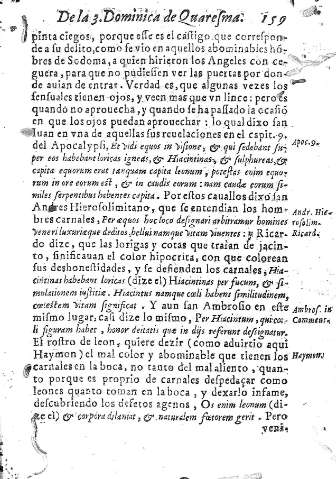 De la 3. Dominica de Quaresma. 159
pinta ciegos, porque esse es el castigo que correspon-
de a su delito, como se vio en aquellos abominables hõ-
bres de Sodoma, a quien hirieron los Angeles con ce-
guera, para que no pudiessen ver las puertas por don-
de auian de entrar. Verdad es, que algunas vezes los
sensuales tienen ojos, y veen mas que vn lince: pero es
quando no aprouecha, y quando se ha passado la ocasiõ
en que los ojos puedan aprouechar: lo qual dixo san
Iuan en vna de aquellas sus reuelaciones en el capit. 9.
Apoc. 9.
del Apocalypsi, Et vidi equos in visione, & qui sedebant su-
per eos habebant loricas igneas, & Hiacintinas, & sulphureas, &
capita equorum erat tanquam capita leonum, potestas enim equo-
rum in ore eorum est, & in caudis eorum: nam caudæ eorum si-
miles serpentibus habentes capita. Por estos cauallos dixo san
Andres Hierosolimitano, que se entendian los hom-
Andr. Hie-
bres carnales, Per æquos hoc loco designari arbitramur homines
rosolim.
veneri luxurieque deditos, belluinamque vitam viuentes: y Ricar-
Ricard.
do dize, que las lorigas y cotas que traian de jacin-
to, sinificauan el color hipocrita, con que colorean
sus deshonestidades, y se defienden los carnales, Hia-
cintinas habebant loricas (dize el) Hiacintinas per fucum, & si-
mulationem iustitiæ. Hiacintus namque cœli habens similitudinem,
cœlestem vitam significat. Y aun san Ambrosio en este
Ambros. in
mismo lugar, casi dize lo mismo, Per Hiacintum, qui cœ-
Comment.
li figuram habet, honor deitatis que in dijs referunt designatur.
El rostro de leon, quiere dezir (como aduirtio aqui
Haymon) el mal color y abominable que tienen los
Haymon.
carnales en la boca, no tanto del mal aliento, quan-
to porque es proprio de carnales despedaçar como
leones quanto toman en la boca, y dexarlo infame,
descubriendo los defetos agenos, Os enim leonum (di-
ze el) & corpora dilantat, & naturalem fœtorem gerit. Pero
vena-